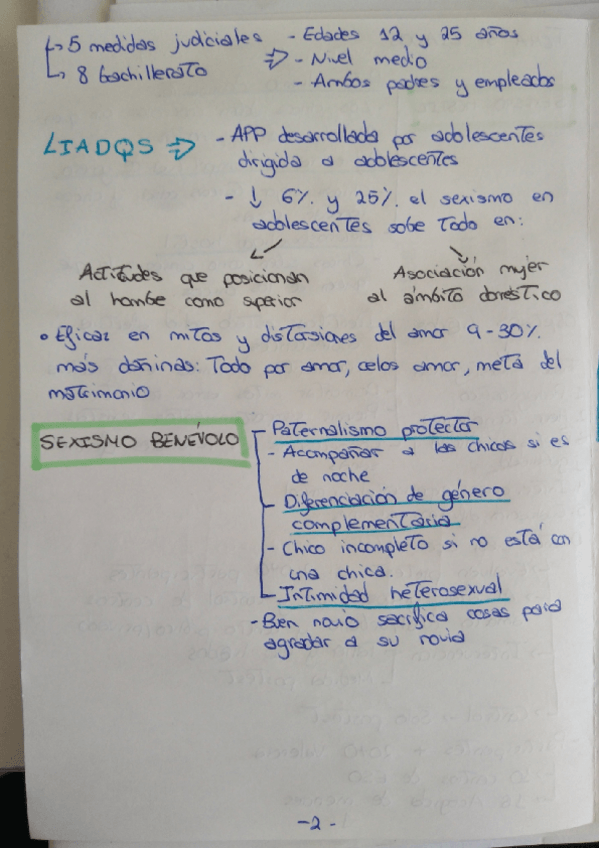 ↳ 5 medidas judiciales - Edades 12 y 25 años
↳ 8 bachillerato ⇒ - Nivel medio
- Ambos padres y empleados
LIADOS ⇒ - APP desarrollada por adolescentes
dirigida a adolescentes
- ↓ 6% y 25% el sexismo en
adolescentes sobe todo en:
Actitudes que posicionan
al hombe como superior
Asociación mujer
al ámbito doméstico
• Eficaz en mitos y distorsiones del amor 9-30%.
más dañinas: Todo por amor, celos amor, meta del
matrimonio
SEXISMO BENÉVOLO
Paternalismo protector
- Acompañar a las chicas si es
de noche
Diferenciación de género
complementaria
- Chico incompleto si no está con
una chica.
Intimidad heterosexual
- Bien novio sacrifica cosas para
agradar a su novia
-2-